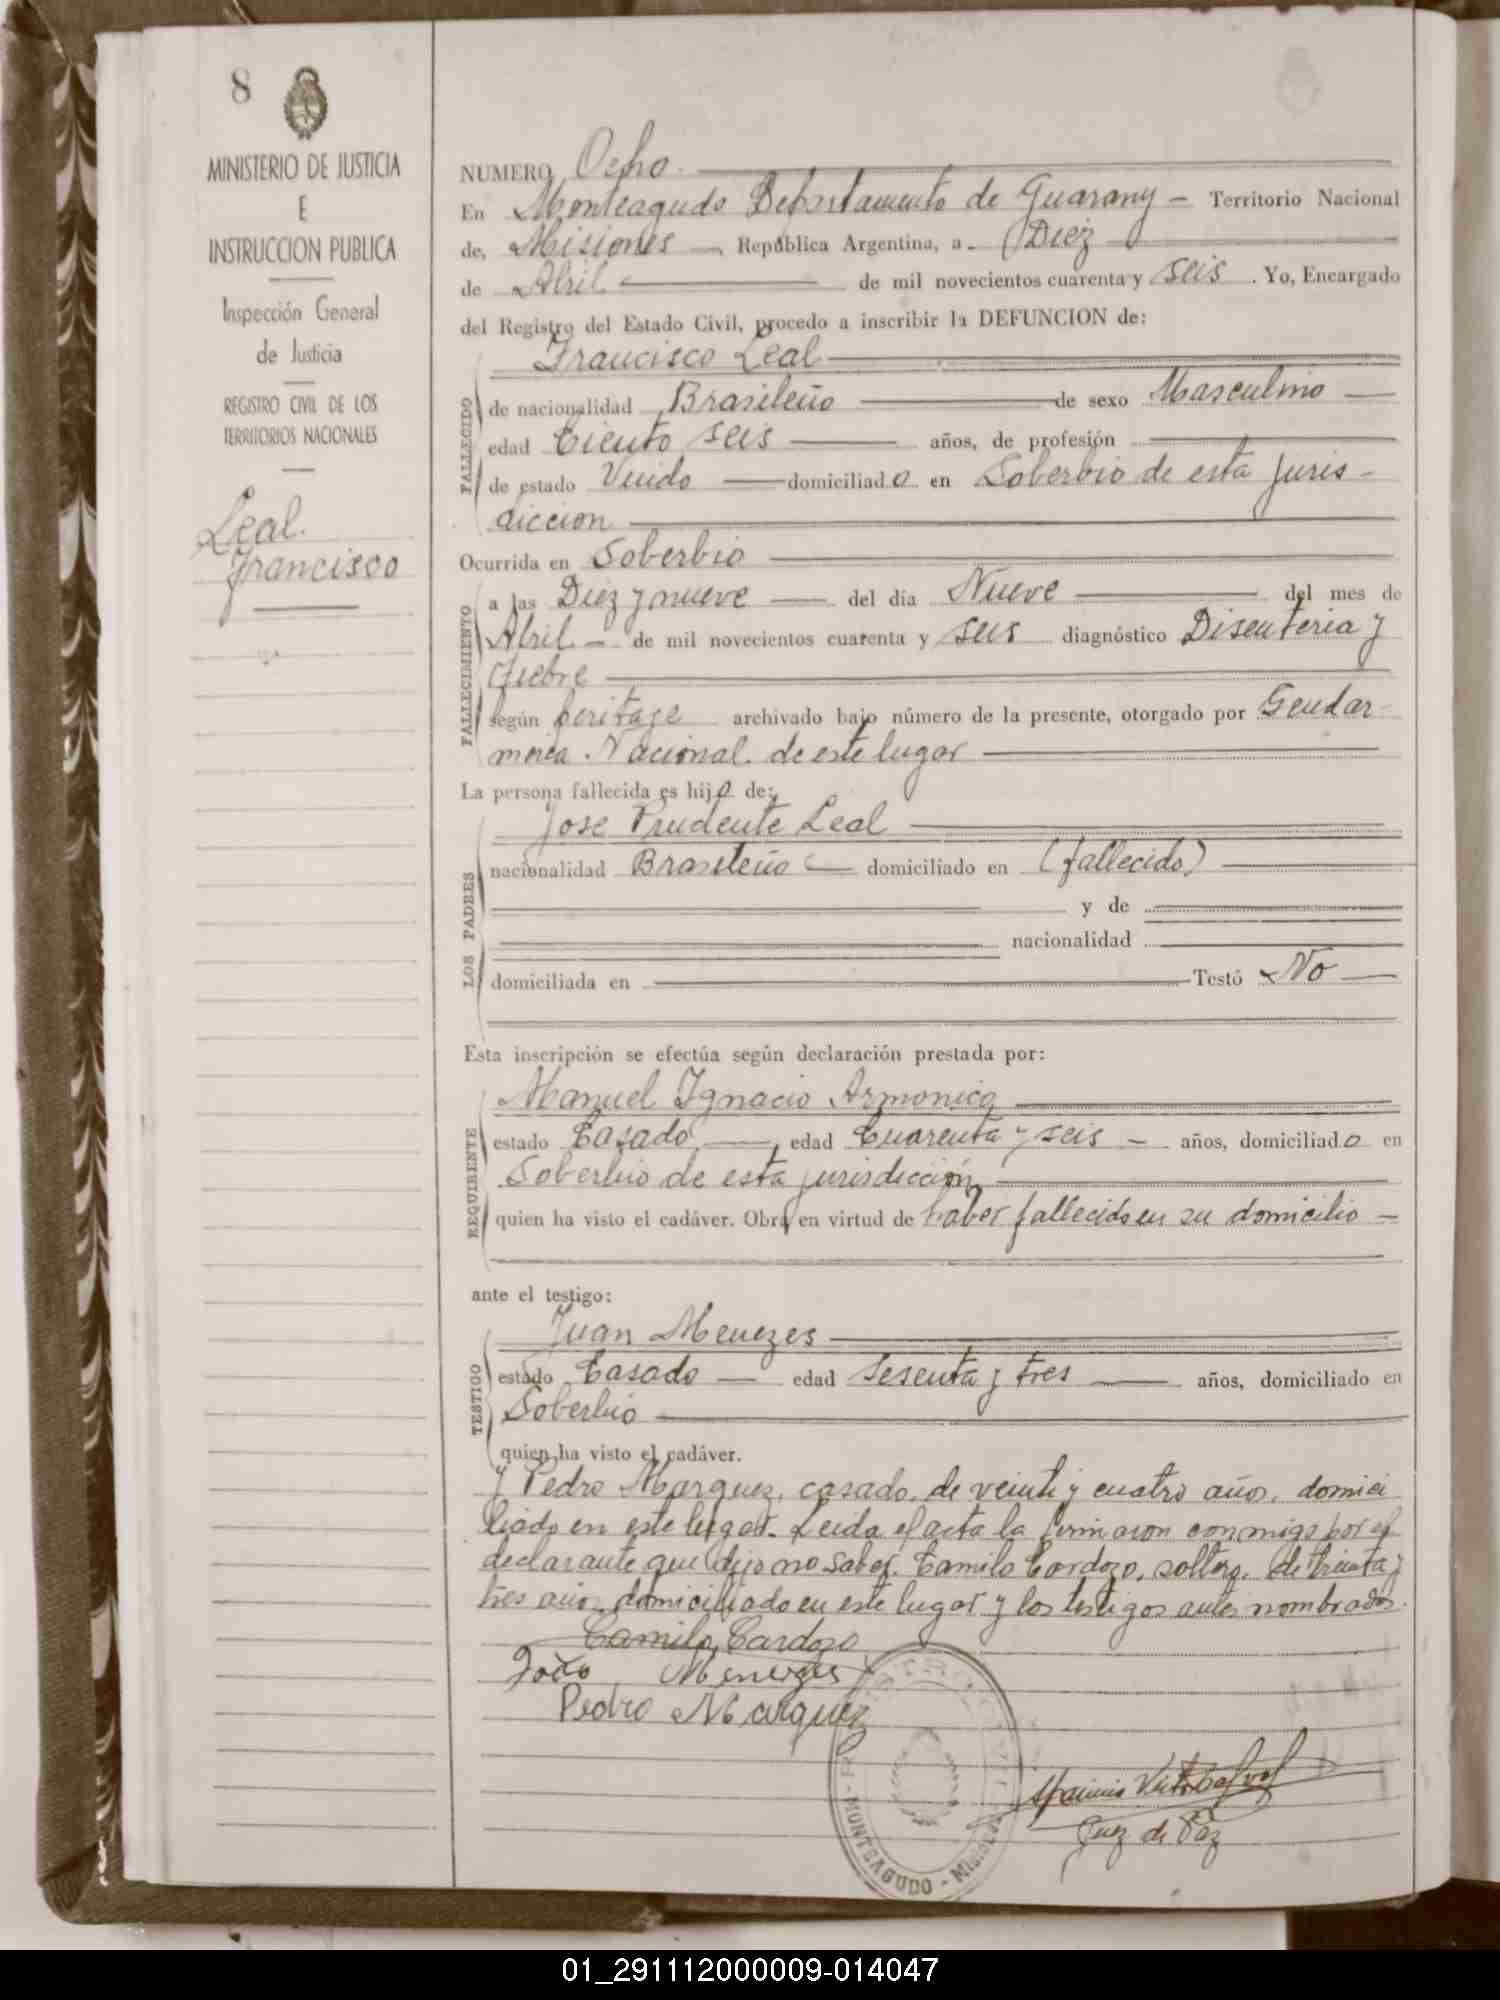 8
MINISTERIO DE JUSTICIA
E
INSTRUCCION PUBLICA
Inspección General
de Justicia
REGISTRO CIVIL DE LOS
TERRITORIOS NACIONALES
Leal
Francisco
NUMERO Ocho
En Monteagudo Departamento de Guarany - Territorio Nacional
de, Misiones República Argentina, a Diez
de Abril de mil novecientos cuarenta y seis. Yo, Encargado
del Registro del Estado Civil, procedo a inscribir la DEFUNCION de:
FALLECIDO
Francisco Leal
de nacionalidad Brasileño de sexo Masculino
edad Ciento seis años, de profesión
de estado Viudo domiciliado en Soberbio de esta juris-
diccion
Ocurrida en Soberbio
FALLECIMIENTO
a las Diez y nueve del día Nueve del mes de
Abril de mil novecientos cuarenta y seis diagnóstico Disenteria y
fiebre
según peritage archivado bajo número de la presente, otorgado por Gendar-
meria Nacional de este lugar
La persona fallecida es hijo de:
LOS PADRES
Jose Prudente Leal
nacionalidad Brasileño domiciliado en (fallecido)
y de
nacionalidad
domiciliada en Testó No
Esta inscripción se efectúa según declaración prestada por:
REQUIRENTE
Manuel Ignacio Armonica
estado Casado, edad Cuarenta y seis años, domiciliado en
Soberbio de esta jurisdicción
quien ha visto el cadáver. Obra en virtud de haber fallecido en su domicilio
ante el testigo:
TESTIGO
Juan Menezes
estado Casado edad Sesenta y tres años, domiciliado en
Soberbio
quien ha visto el cadáver.
y Pedro Marquez, casado, de veinte y cuatro años, domici
liado en este lugar. Leida el acta la firmaron conmigo por el
declarante que dijo no saber, Camilo Cardozo, soltero, de treinta y
tres años, domiciliado en este lugar y los testigos antes nombrados.
Camilo Cardozo
João Menezes
Pedro Marquez
MONTEAGUDO - MISIONES
Juez de Paz
01_291112000009-014047